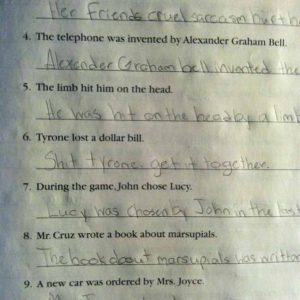 Her Friends cruel sarcasm hurt h
4. The telephone was invented by Alexander Graham Bell.
Alexander Graham bell invented the
5. The limb hit him on the head.
He was hit on the head by a limb
6. Tyrone lost a dollar bill.
Shit tyrone. get it together.
7. During the game, John chose Lucy.
Lucy was chosen by John in the last
8. Mr. Cruz wrote a book about marsupials.
The book about marsupials was written
9. A new car was ordered by Mrs. Joyce.